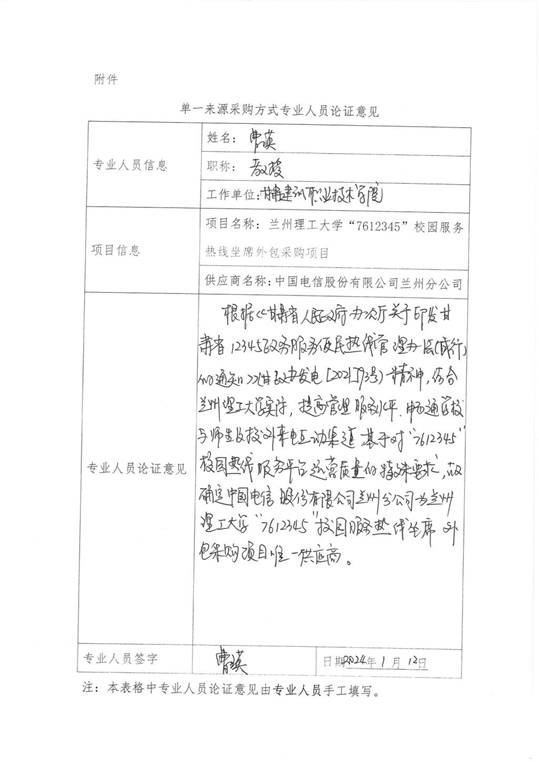 附件
单一来源采购方式专业人员论证意见
专业人员信息
姓名：曹瑛
职称：教授
工作单位：甘肃建筑职业技术学院
项目信息
项目名称：兰州理工大学“7612345”校园服务
热线坐席外包采购项目
供应商名称：中国电信股份有限公司兰州分公司
专业人员论证意见
根据《甘肃省人民政府办公厅关于印发甘
肃省12345政务服务便民热线管理办法(试行)
的通知》(甘政办发电[2021]93号)精神，结合
兰州理工大学实际，提高管理服务水平，畅通学校
与师生及校外来电互动渠道，基于对“7612345”
校园热线服务平台运营质量的特殊要求，故
确定中国电信股份有限公司兰州分公司为兰州
理工大学“7612345”校园服务热线坐席外
包采购项目唯一供应商。
专业人员签字
曹瑛
日期2024年1月12日
注：本表格中专业人员论证意见由专业人员手工填写。